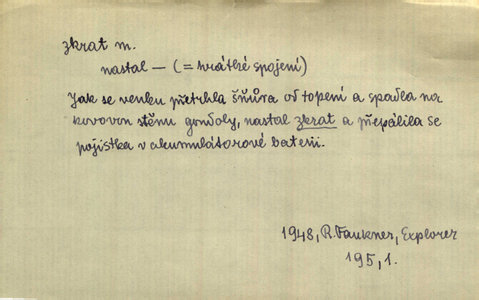 zkrat m.
nastal — (= krátké spojení)
Jak se venku přetrhla šňůra od topení a spadla na
kovovou stěnu gondoly, nastal zkrat a přepálila se
pojistka v akumulátorové baterii.
1948, R. Faukner, Explorer
195, 1.